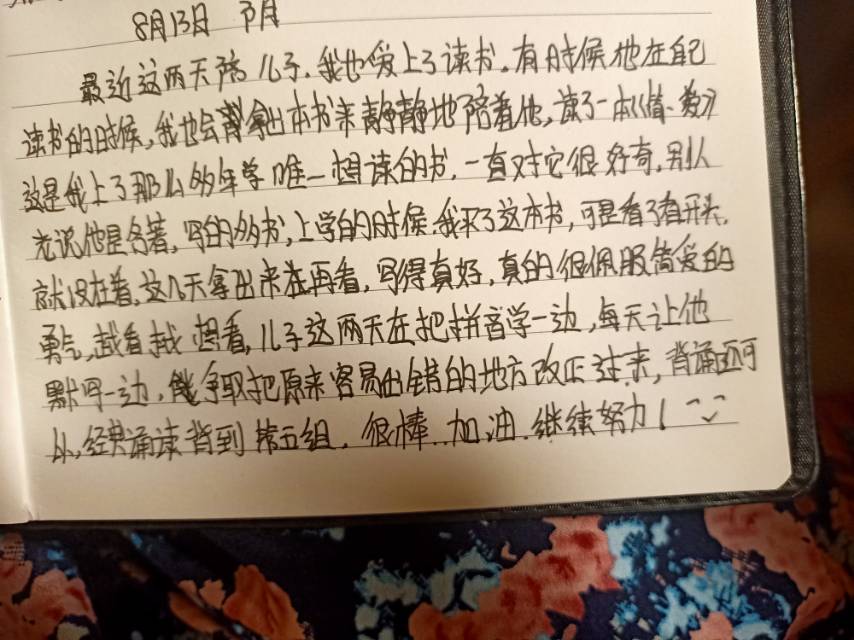 8月13日
最近这两天陪儿子.我也爱上了读书.有时候他在自己
读书的时候,我也会拿出本书来静静地陪着他,读了一本《简·爱》
这是我上了那么多年学唯一想读的书.一直对它很好奇.别人
老说他是名著,写的多好,上学的时候.我买了这本书,可是看了看开头.
就没在看,这几天拿出来在再看,写得真好,真的很佩服简爱的
勇气,越看越想看,儿子这两天在把拼音学一边,每天让他
默写一边,能争取把原来容易出错的地方改正过来,背诵还可
以,经典诵读背到第五组.很棒.加油.继续努力!